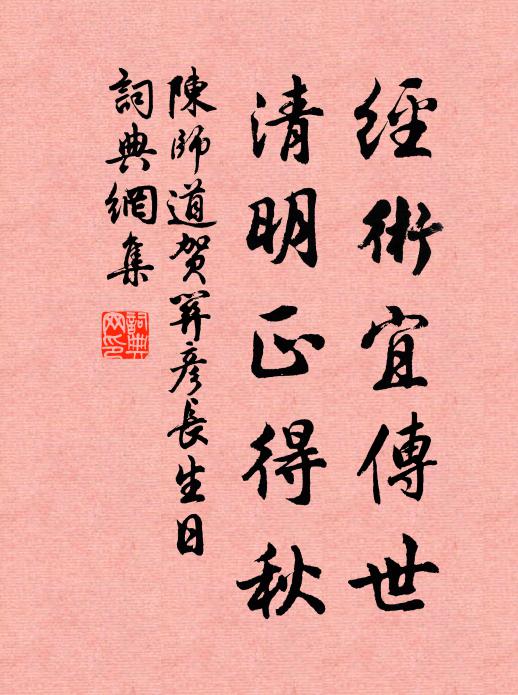 經術宜傳世
清明正得秋
陳師道賀關彥長生日
詞典網集
詞典